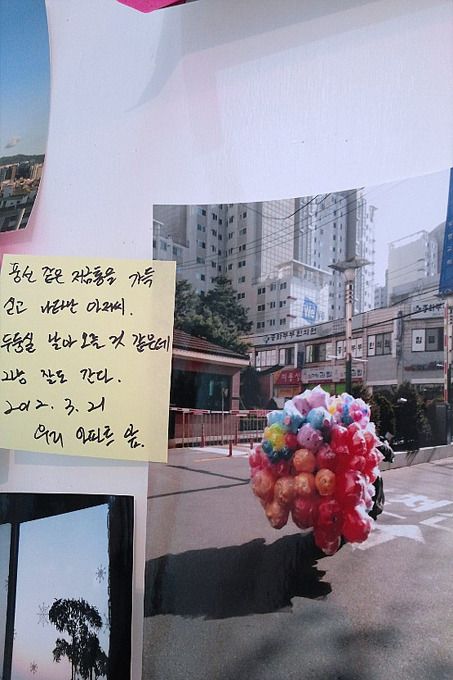 풍선 같은 저금통을 가득
싣고 나타난 아저씨.
두둥실 날아오를 것 같은데
그냥 잘도 간다.
2012. 3. 21
우리 아파트 앞.